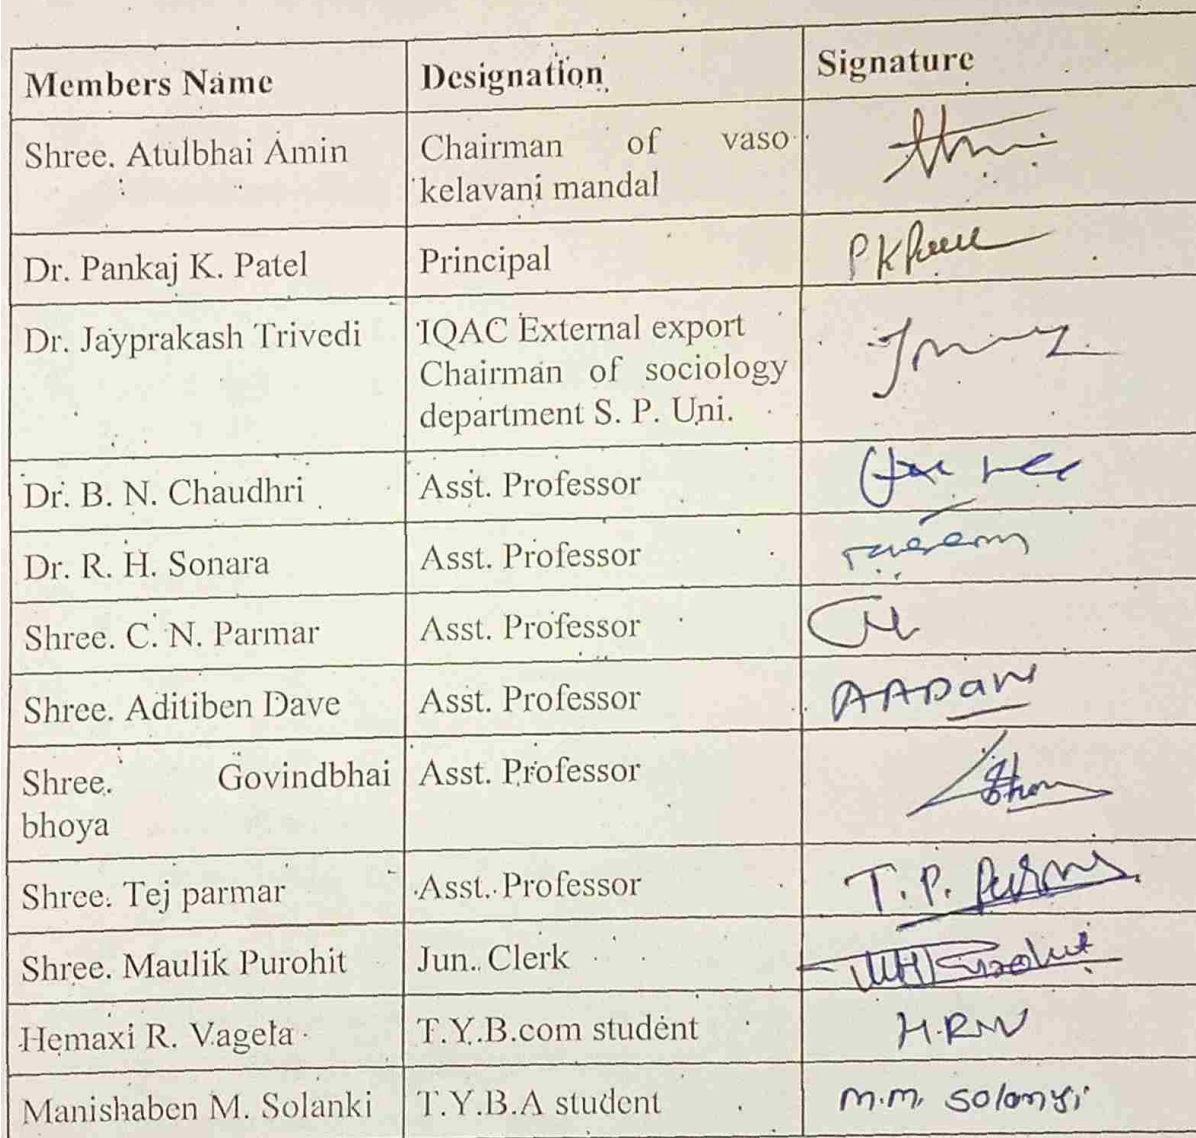 Members Name Designation Signature
Shree. Atulbhai Amin Chairman of vaso
kelavani mandal
Dr. Pankaj K. Patel Principal
Dr. Jayprakash Trivedi IQAC External export
Chairman of sociology
department S. P. Uni.
Dr. B. N. Chaudhri Asst. Professor
Dr. R. H. Sonara Asst. Professor
Shree. C. N. Parmar Asst. Professor
Shree. Aditiben Dave Asst. Professor AADave
Shree. Govindbhai Asst. Professor
bhoya
Shree. Tej parmar Asst. Professor T.P.
Shree. Maulik Purohit Jun. Clerk
Hemaxi R. Vagela T.Y.B.com student H.R.V
Manishaben M. Solanki T.Y.B.A student m.m. solanki